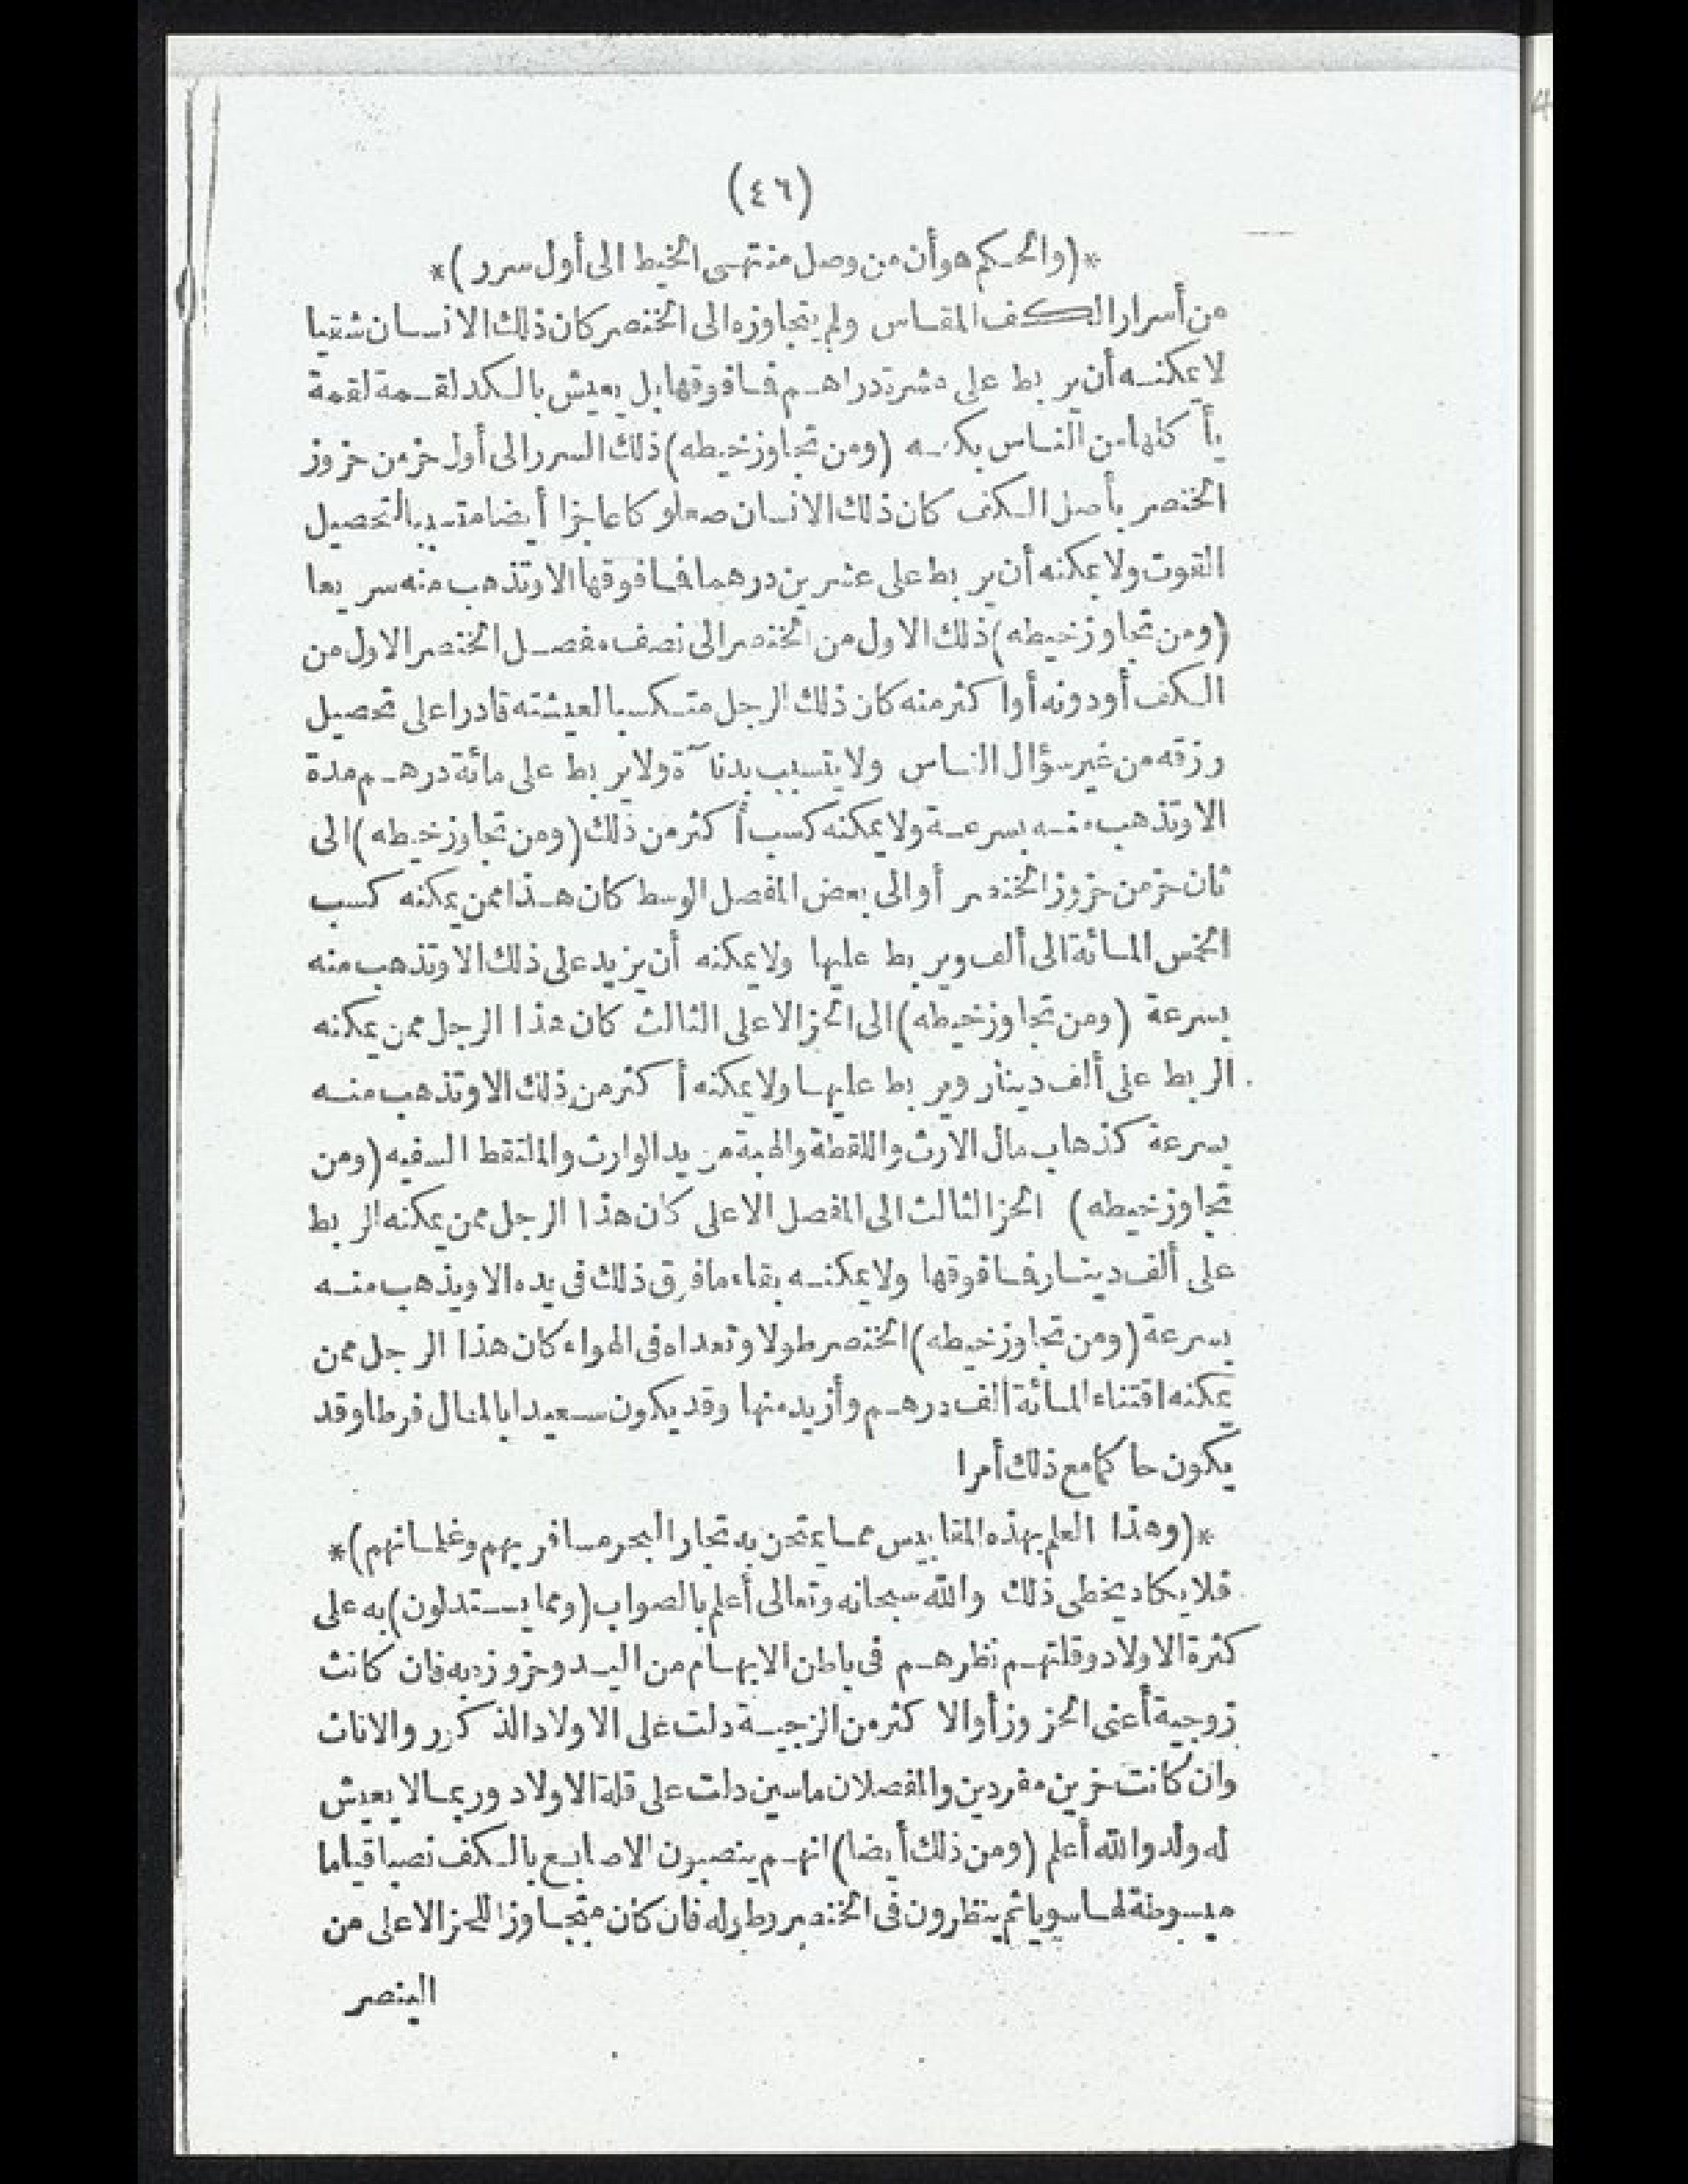 (٤٦)
*(والحكم هو أن من وصل منتهى الخيط الى أول سرر)*
من أسرار الكف المقاس ولم يتجاوزه الى الخنصر كان ذلك الانسان شقيا
لا يمكنه أن يربط على عشرة دراهم فما فوقها بل يعيش بالكد لقمة لقمة
يأكلها من الناس بكده (ومن تجاوز خيطه) ذلك السرر الى أول حز من حزوز
الخنصر بأصل الكف كان ذلك الانسان صعلوكا عاجزا أيضا متسببا لتحصيل
القوت ولا يمكنه أن يربط على عشرين درهما فما فوقها الا وتذهب منه سريعا
(ومن تجاوز خيطه) ذلك الاول من الخنصر الى نصف مفصل الخنصر الاول من
الكف أو دونه أو اكثر منه كان ذلك الرجل متكسبا لعيشته قادرا على تحصيل
رزقه من غير سؤال الناس ولا يتسبب بدناآة ولا يربط على مائة درهم مدة
الا وتذهب منه بسرعة ولا يمكنه كسب أكثر من ذلك (ومن تجاوز خيطه) الى
ثان حز من حزوز الخنصر أو الى بعض المفصل الوسط كان هذا ممن يمكنه كسب
الخمس المائة الى ألف ويربط عليها ولا يمكنه أن يزيد على ذلك الا وتذهب منه
بسرعة (ومن تجاوز خيطه) الى الحز الاعلى الثالث كان هذا الرجل ممن يمكنه
الربط على ألف دينار ويربط عليها ولا يمكنه أكثر من ذلك الا وتذهب منه
بسرعة كذهاب مال الارث واللقطة والهبة من يد الوارث والملتقط السفيه (ومن
تجاوز خيطه) الحز الثالث الى المفصل الاعلى كان هذا الرجل ممن يمكنه الربط
على ألف دينار فما فوقها ولا يمكنه بقاء ما فوق ذلك فى يده الا ويذهب منه
بسرعة (ومن تجاوز خيطه) الخنصر طولا وتعداه فى الهواء كان هذا الرجل ممن
يمكنه اقتناء المائة ألف درهم وأزيد منها وقد يكون سعيدا بالمال فرطا وقد
يكون حاكما مع ذلك أمرا
*(وهذا العلم بهذه المقاييس مما يمتحن به تجار البحر مسافريهم وغلمانهم)*
فلا يكاد يخطى ذلك والله سبحانه وتعالى أعلم بالصواب (ومما يستدلون) به على
كثرة الاولاد وقلتهم نظرهم فى باطن الابهام من اليد وحزوزه به فان كانت
زوجية أعنى الحزوز أو الاكثر من الزجية دلت على الاولاد الذكور والاناث
وان كانت حزين مفردين والمفصلان ماسين دلت على قلة الاولاد وربما لا يعيش
له ولد والله أعلم (ومن ذلك أيضا) انهم ينصبون الاصابع بالكف نصبا قياما
مبسوطة لها سويا ثم ينظرون فى الخنصر وطوله فان كان متجاوزا للحز الاعلى من
البنصر